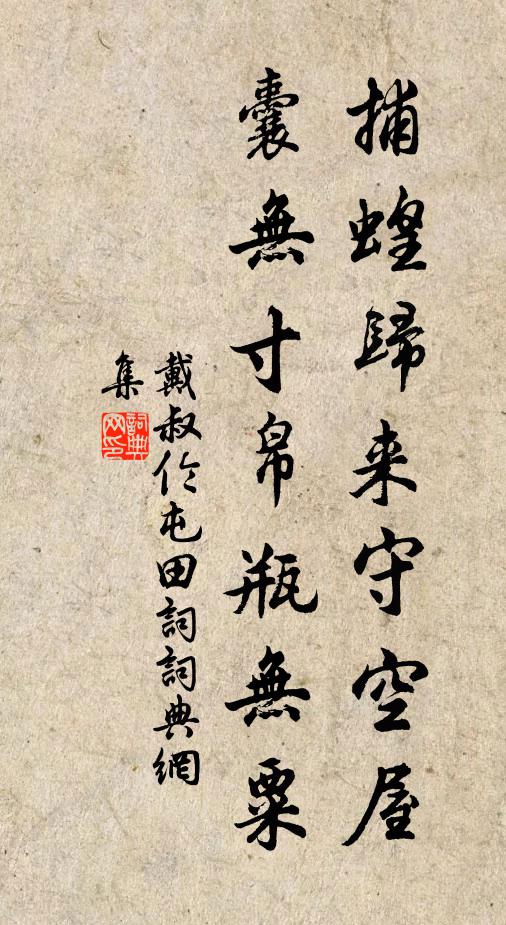 捕蝗歸来守空屋
囊無寸帛瓶無粟
戴叔伦屯田詞詞典網
集
詞典网印